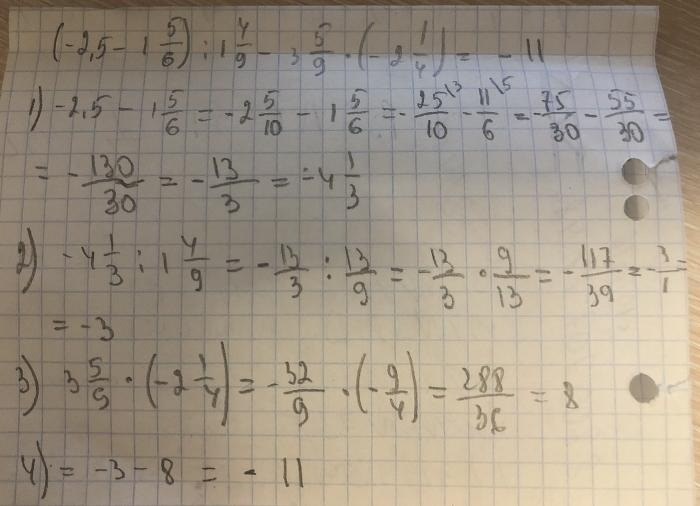 (-2,5 - 1 5/6) : 1 4/9 - 3 5/9 · (-2 1/4) = -11
1) -2,5 - 1 5/6 = -2 5/10 - 1 5/6 = -25/10 \3 - 11/6 \5 = -75/30 - 55/30 =
= -130/30 = -13/3 = -4 1/3
2) -4 1/3 : 1 4/9 = -13/3 : 13/9 = -13/3 · 9/13 = -117/39 = -3/1 =
= -3
3) 3 5/9 · (-2 1/4) = -32/9 · (-9/4) = 288/36 = 8
4) = -3 - 8 = -11